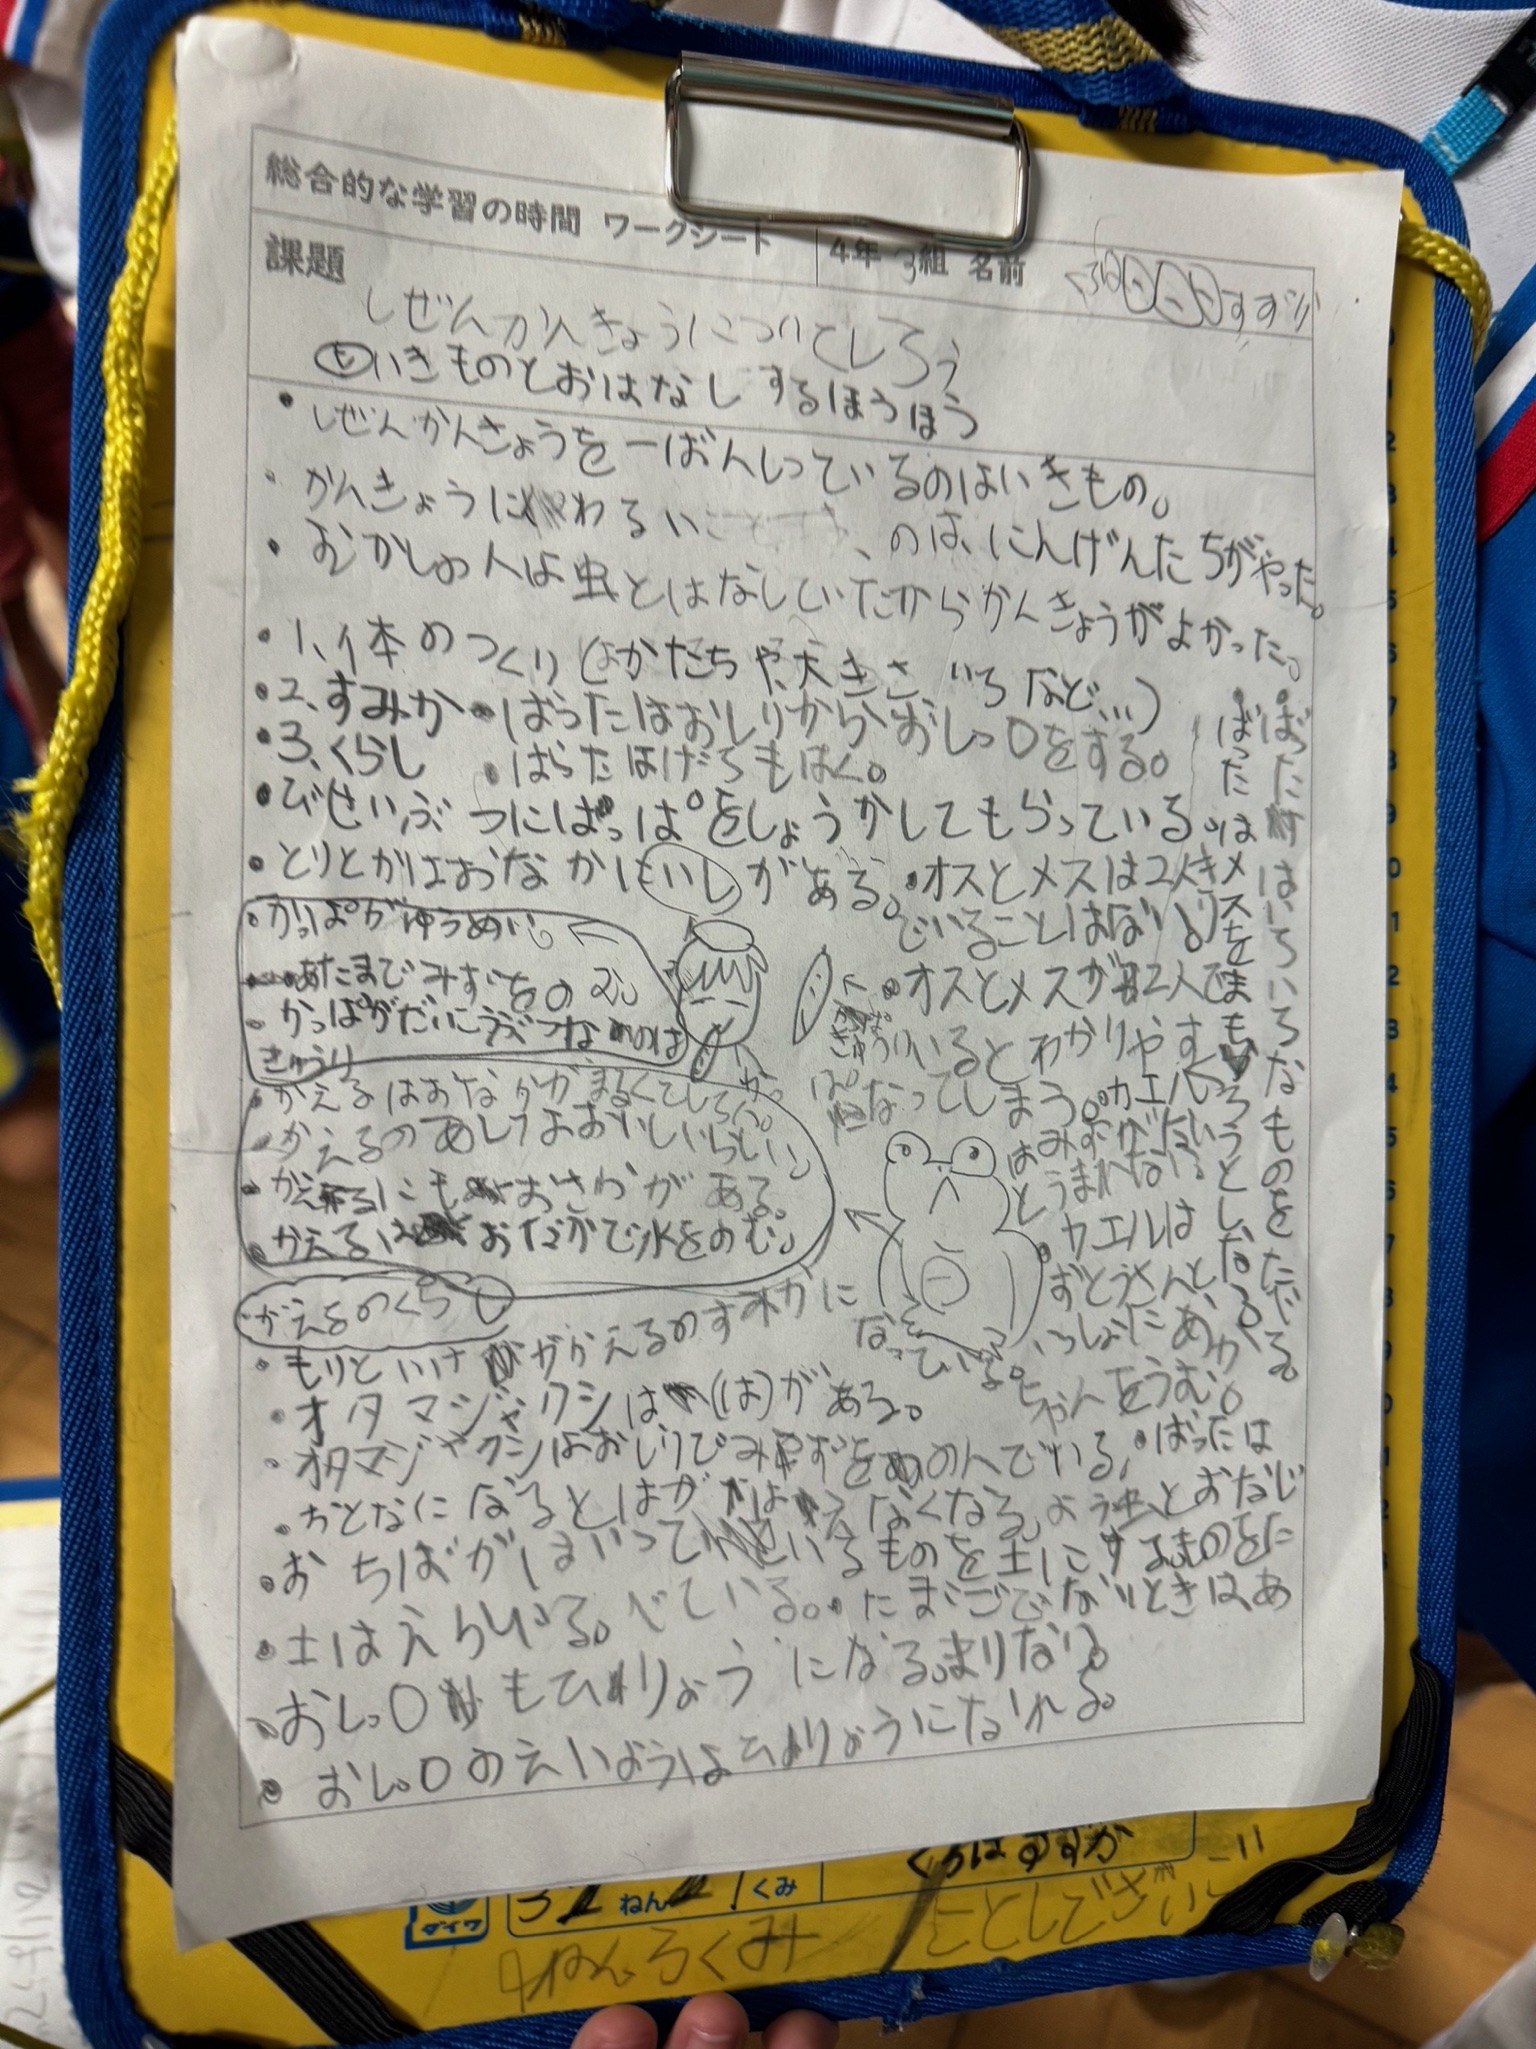 総合的な学習の時間 ワークシート
4年 3組 名前
課題
しぜんかんきょうについてしろう
いきものとおはなしするほうほう
・しぜんかんきょうを一ばんしっているのはいきもの。
・かんきょうにわるいのは、にんげんたちがやった。
・むかしの人は虫とはなしていたからかんきょうがよかった。
・1、体のつくり(かたちや大きさ、いろなど…)
・2、すみか ・ばったはおしりからおしっ〇をする。
・3、くらし ・ばったはげろもはく。
・びせいぶつにはっぱをしょうかしてもらっている。
・とりとかはおなかにいしがある。
・オスとメスは2人き
でいることはない。
・オスとメスが2人で
いるとわかりやす
なってしまう。
・ばったは
メスをまもろうとしなくなる。
・ばったはいろいろなものをたべる。
・かっぱがゆうめい。
・あたまでみずをのむ。
・かっぱがだいこうぶつなのは
きゅうり
かっぱ
きゅうり
・かえるはおなかがまるくてしろい。
・かえるのあしはおいしいらしい。
・かえるにもおさらがある。
・かえるはおなかで水をのむ。
・カエル
はみずがない
とうまれない。
・カエルは
おとうさんと
いっしょにあか
ちゃんをうむ。
かえるのくらし
・もりといけががかえるのすみかに
なっている。
・オタマジャクシは(は)がある。
・オタマジャクシはおしりでみずをのんでいる。
・おとなになるとはがはえなくなる。
・ばったは
よう虫とおなじ
ものをた
べている。
・おちばがはいっているものを土にする。
・たまごでないときは、あ
まりない。
・土はえらいる。
・おしっ〇もひりょうになる。
・おしっ〇のえいようはひりょうになれる。
ダイワ
ねん
くみ
くろはすずか
4ねんろくみ